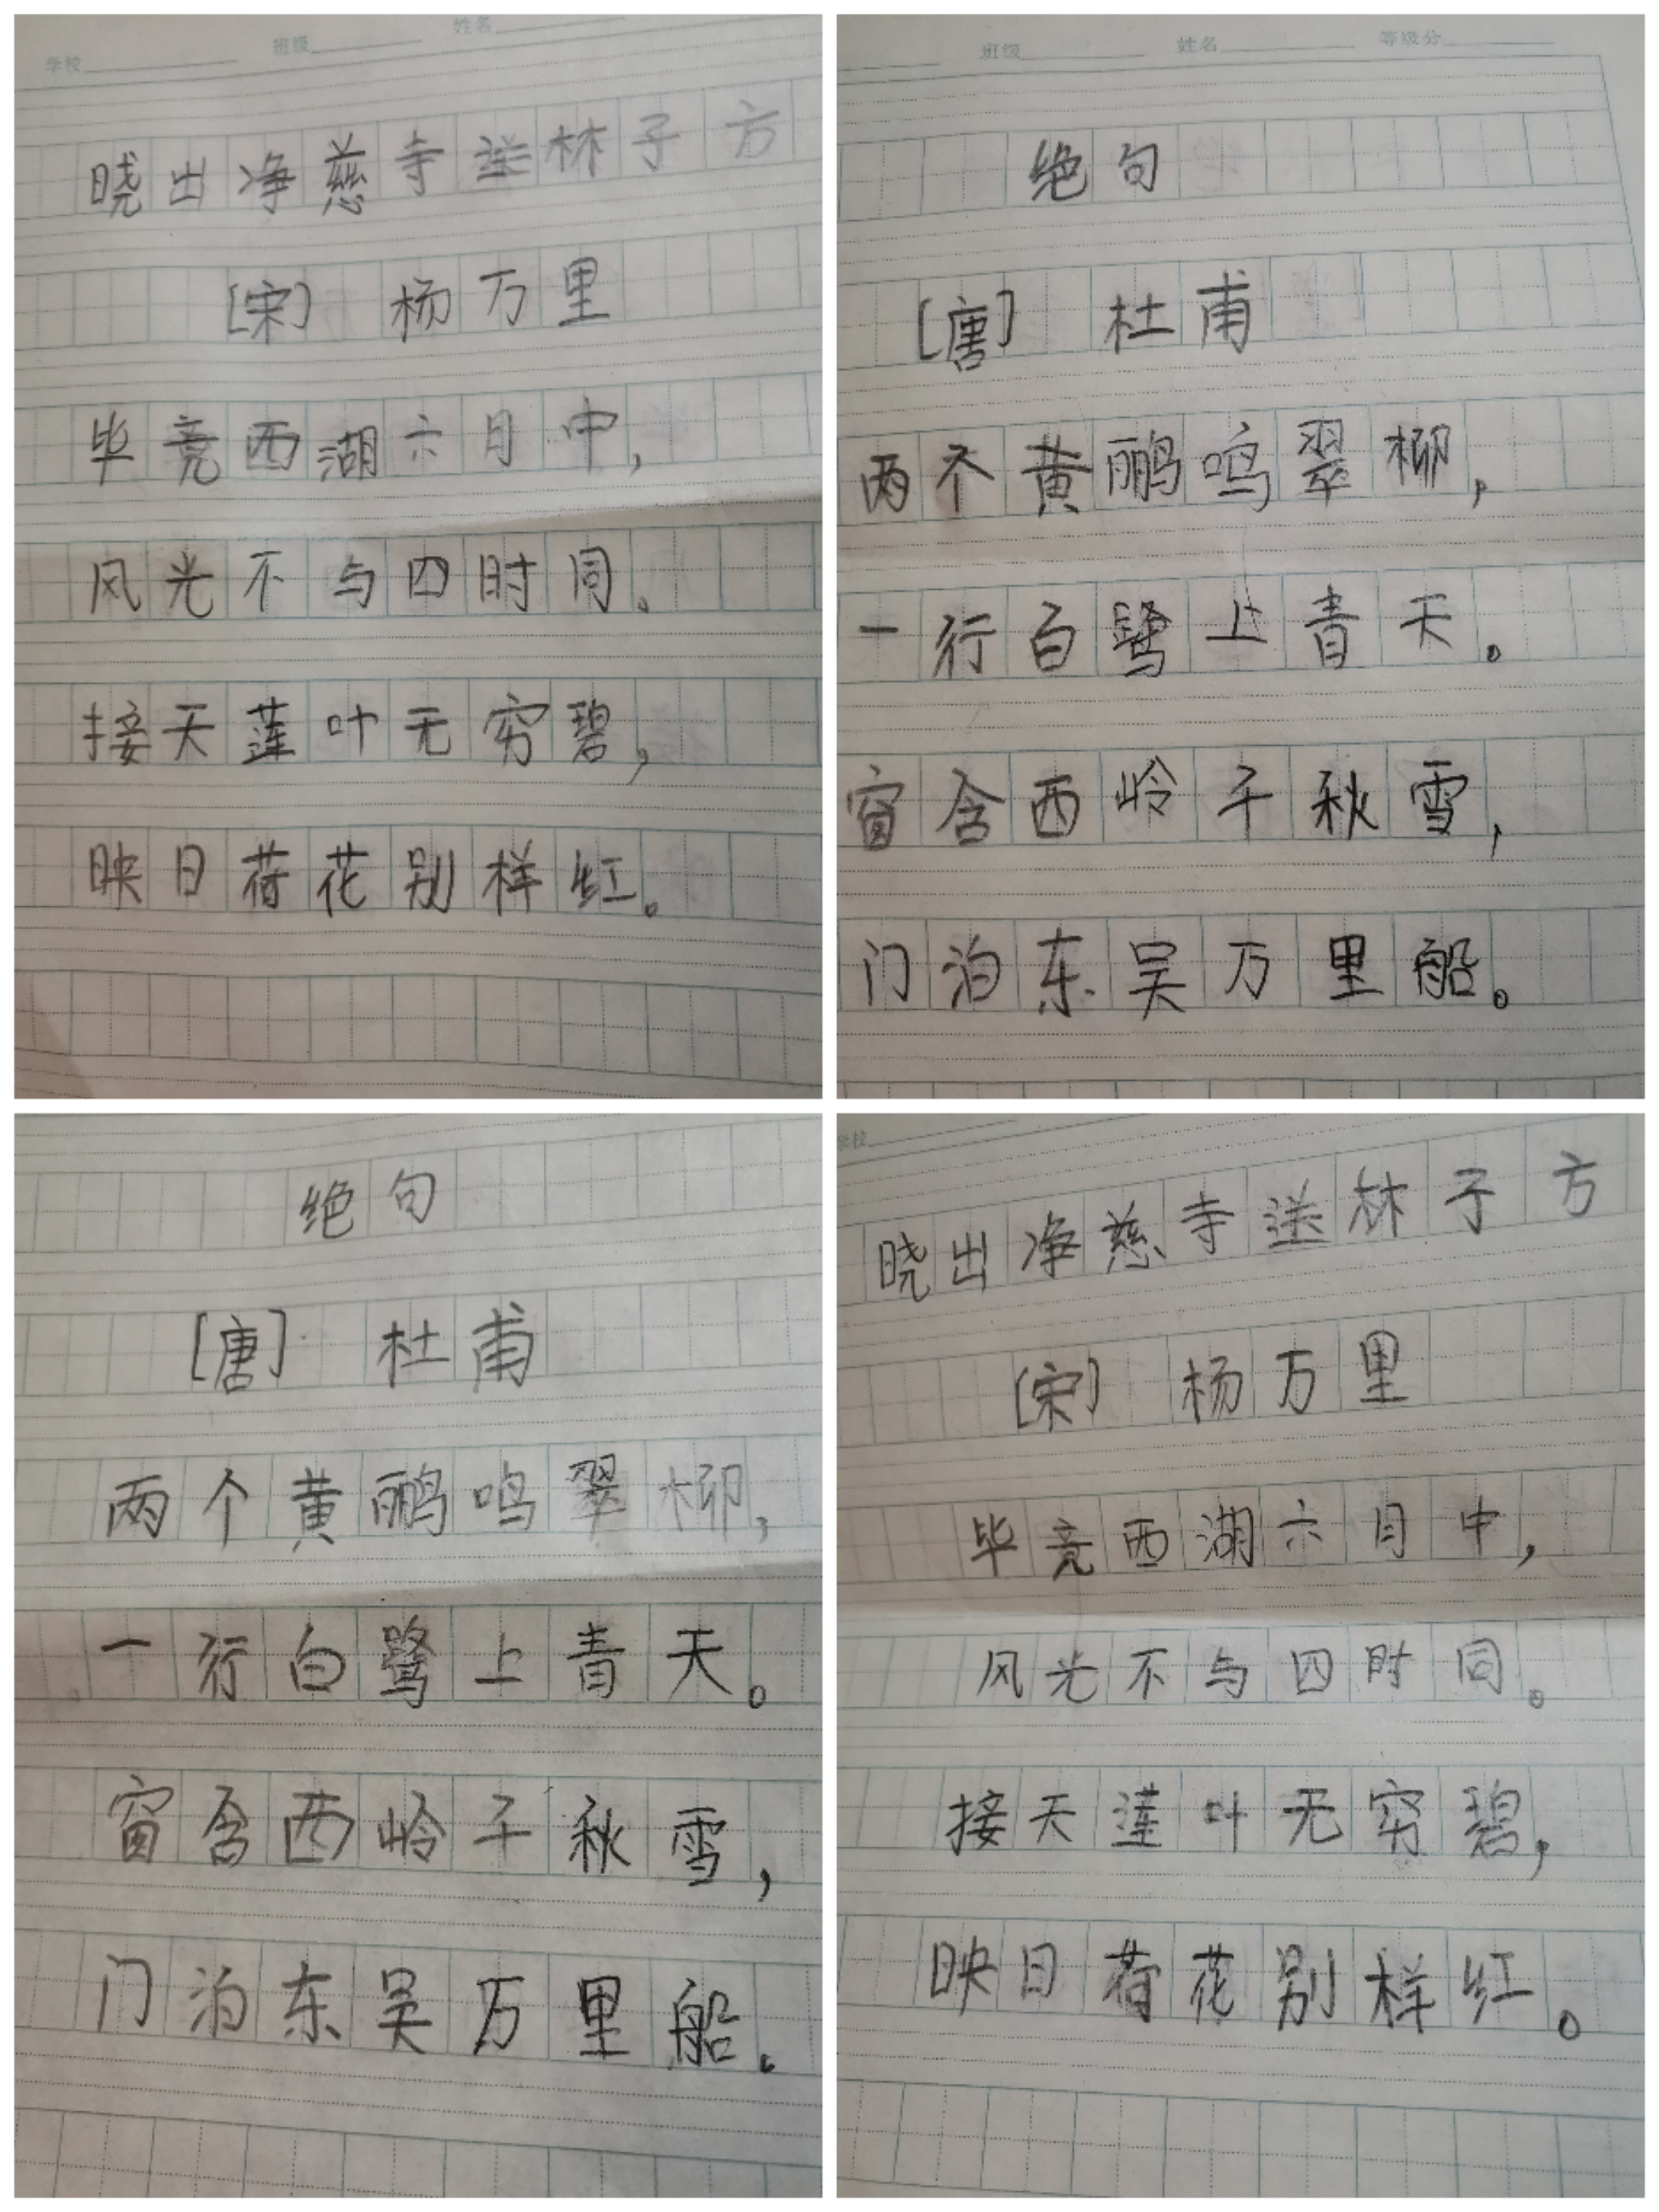 学校 班级 姓名
晓出净慈寺送林子方
[宋] 杨万里
毕竟西湖六月中,
风光不与四时同。
接天莲叶无穷碧,
映日荷花别样红。
班级 姓名 等级分
绝句
[唐] 杜甫
两个黄鹂鸣翠柳,
一行白鹭上青天。
窗含西岭千秋雪,
门泊东吴万里船。
绝句
[唐] 杜甫
两个黄鹂鸣翠柳,
一行白鹭上青天。
窗含西岭千秋雪,
门泊东吴万里船。
学校
晓出净慈寺送林子方
[宋] 杨万里
毕竟西湖六月中,
风光不与四时同。
接天莲叶无穷碧,
映日荷花别样红。